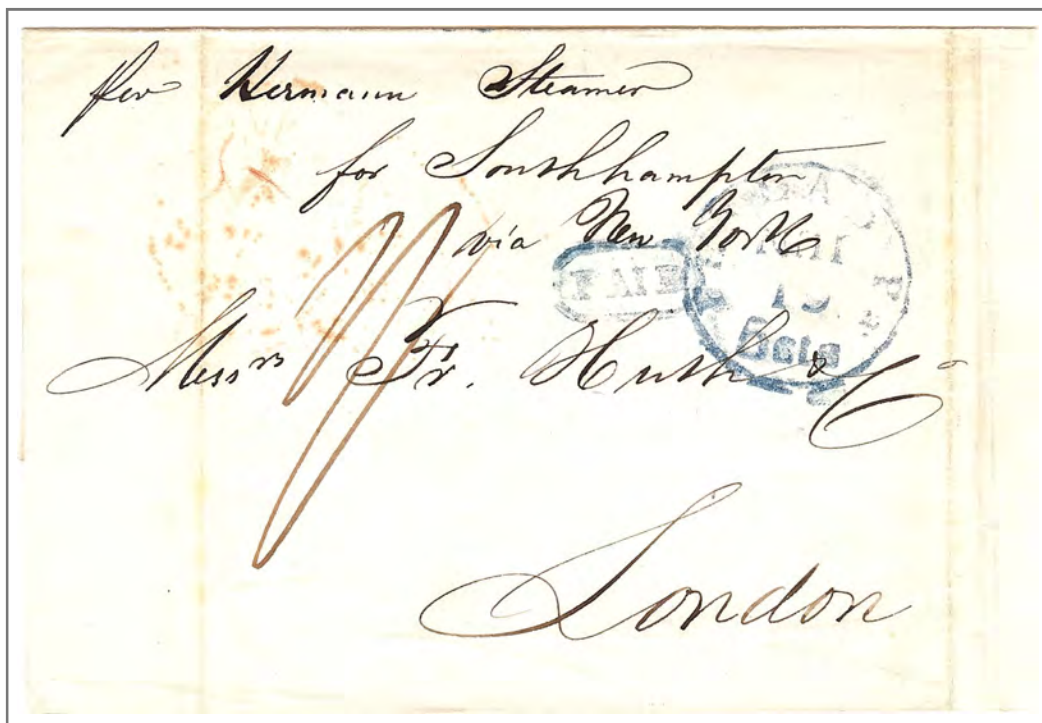 per Hermann Steamer
for Southhampton
via New York
19
Messrs Fr. Huth & Co
London